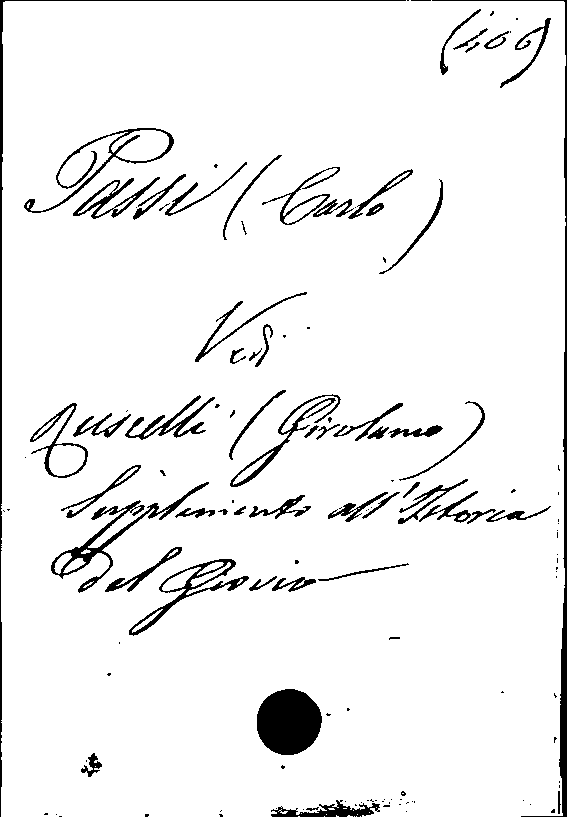 (406)
Passi (Carlo)
Vedi
Ruscelli (Girolamo)
Supplemento all'Istoria
del Giovio